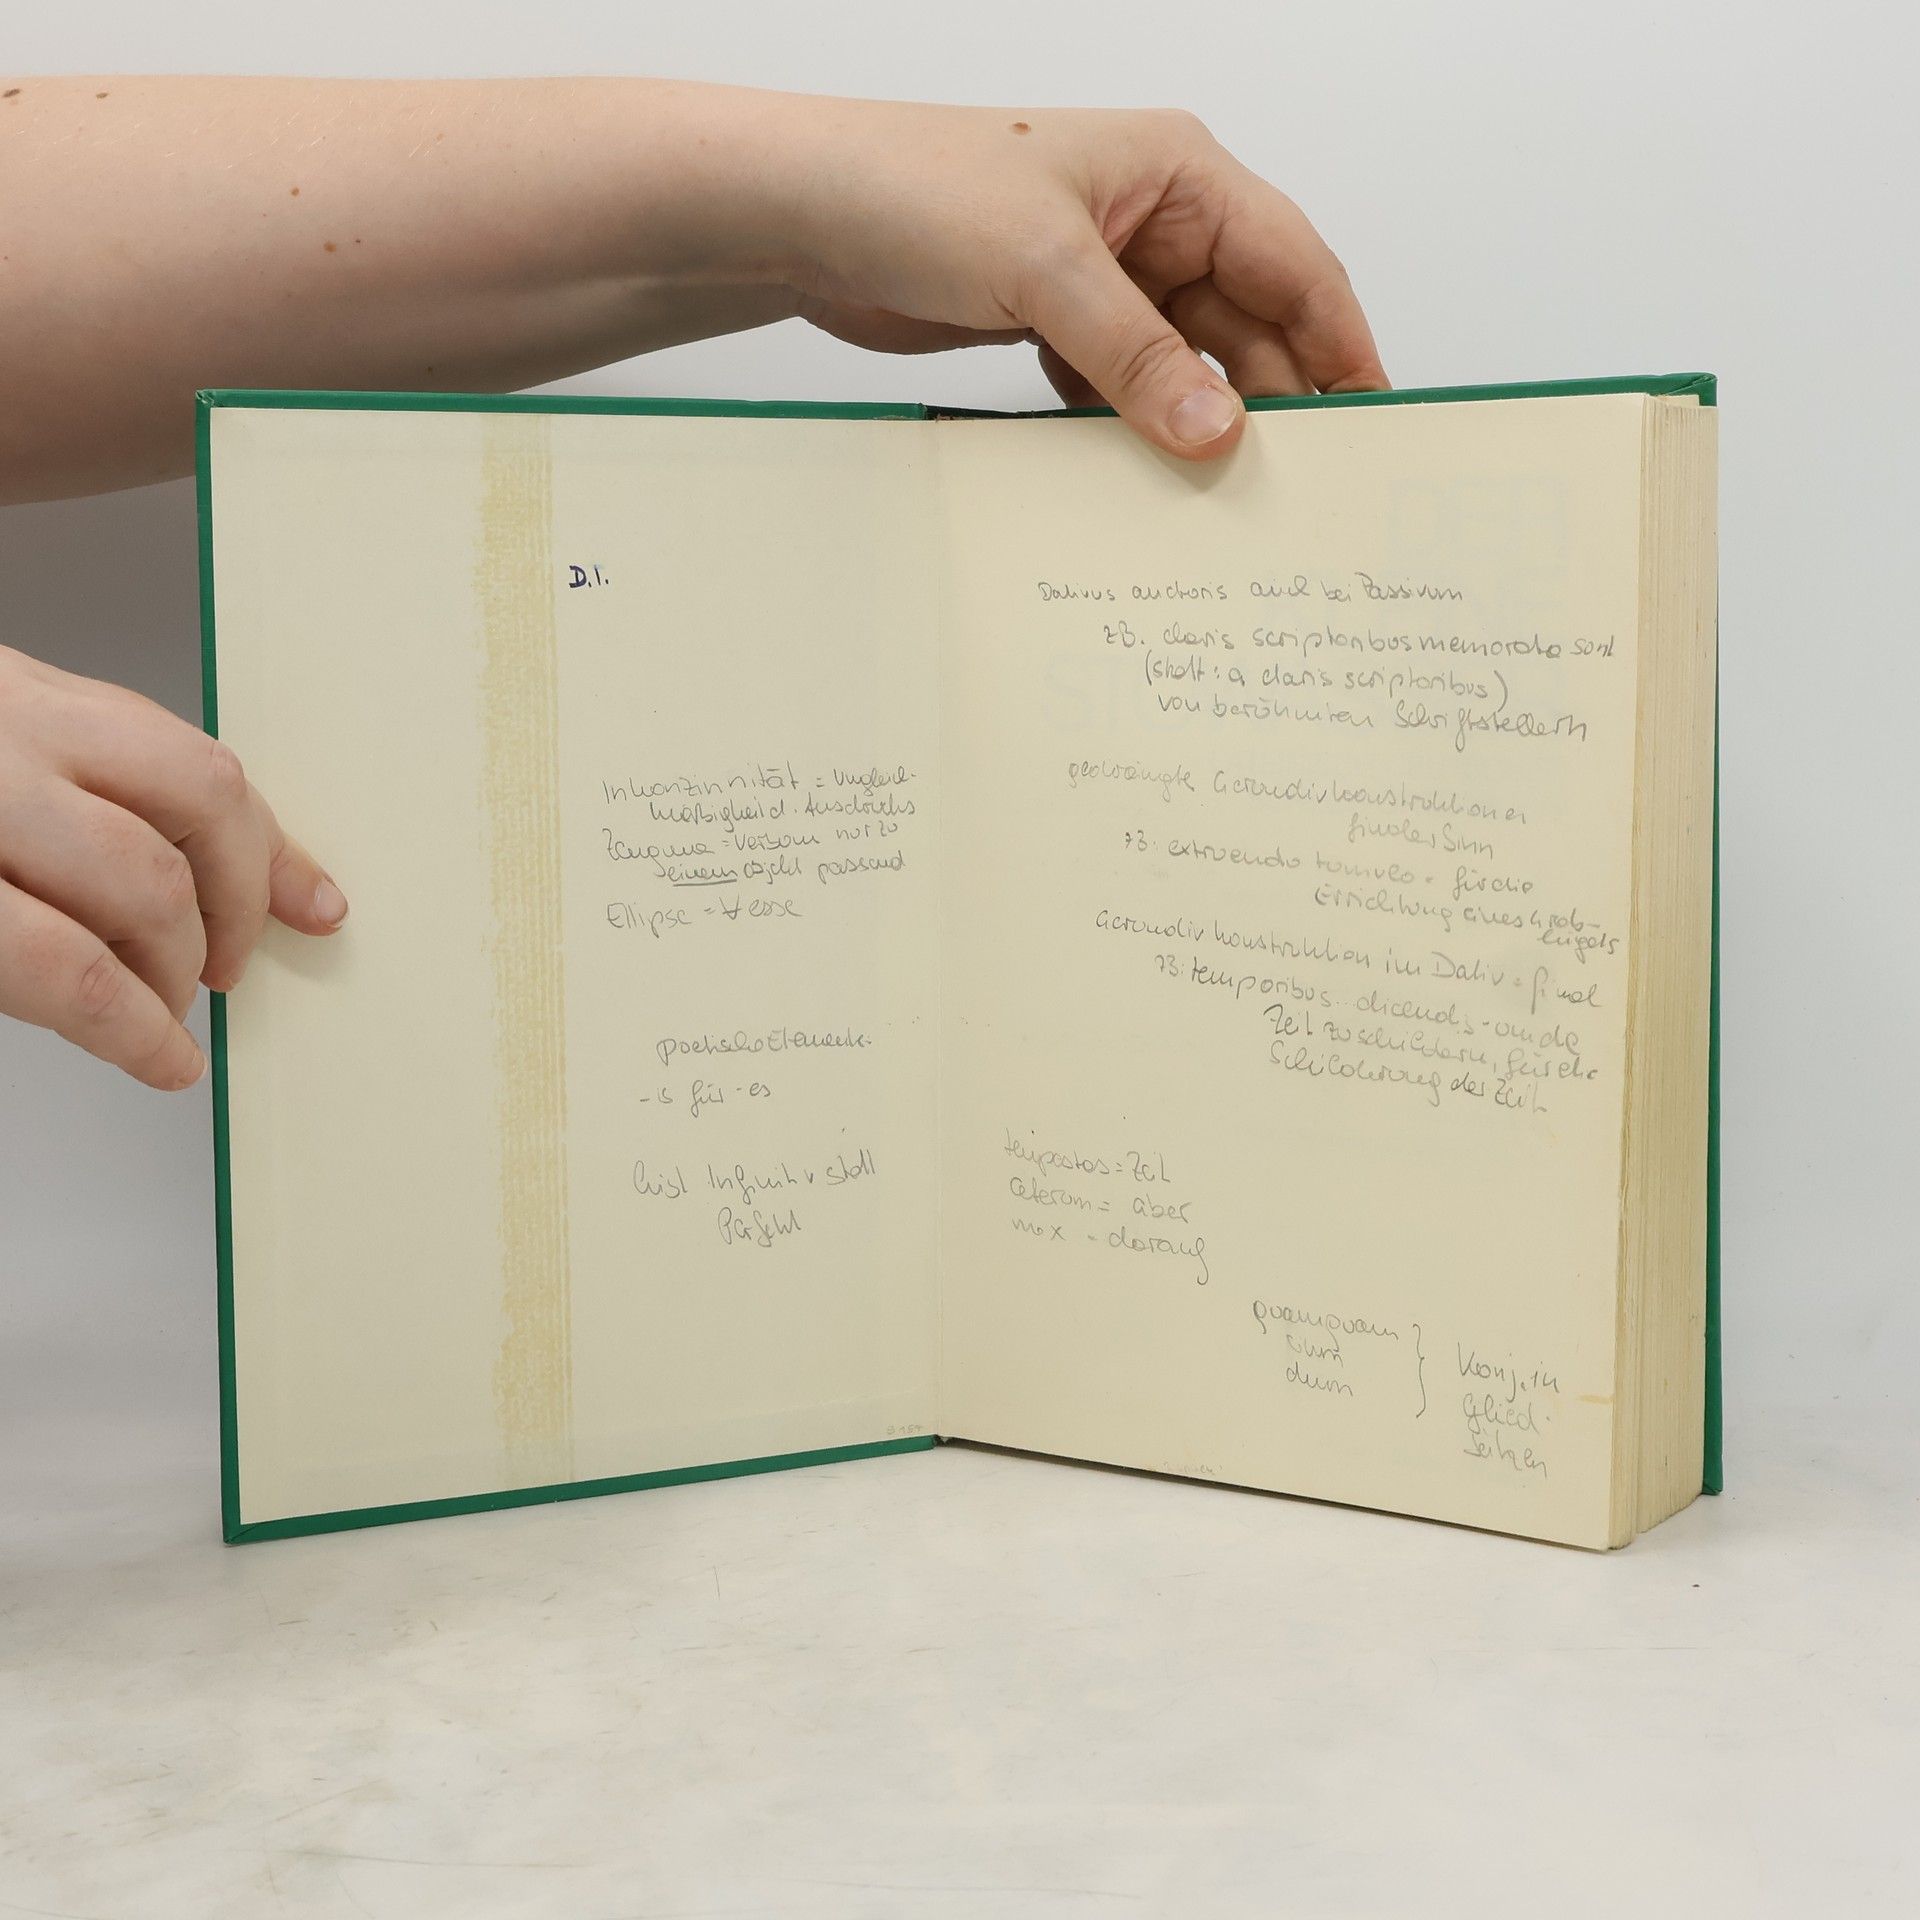 D.I.
Inkonzinnität = Ungleich-
mäßigkeit d. Ausdrucks
Zeugma = Verbum nur zu
einem Objekt passend
Ellipse = ∀ esse
poetische Elemente:
-is für -es
hist Infinitiv statt
Perfekt
Dativus auctoris auch bei Passivum
zB. claris scriptoribus memorata sunt
(statt: a claris scriptoribus)
von berühmten Schriftstellern
gedrängte Gerundivkonstruktionen
finaler Sinn
zB: extruendo tumulo = für die
Errichtung eines Grab-
hügels
Gerundivkonstruktion im Dativ = final
zB: temporibus... dicendis - um die
Zeit zu schildern, für die
Schilderung der Zeit
tempestas = Zeit
ceterum = aber
mox = darauf
quamquam
cum
dum
Konj. in
Glied-
sätzen